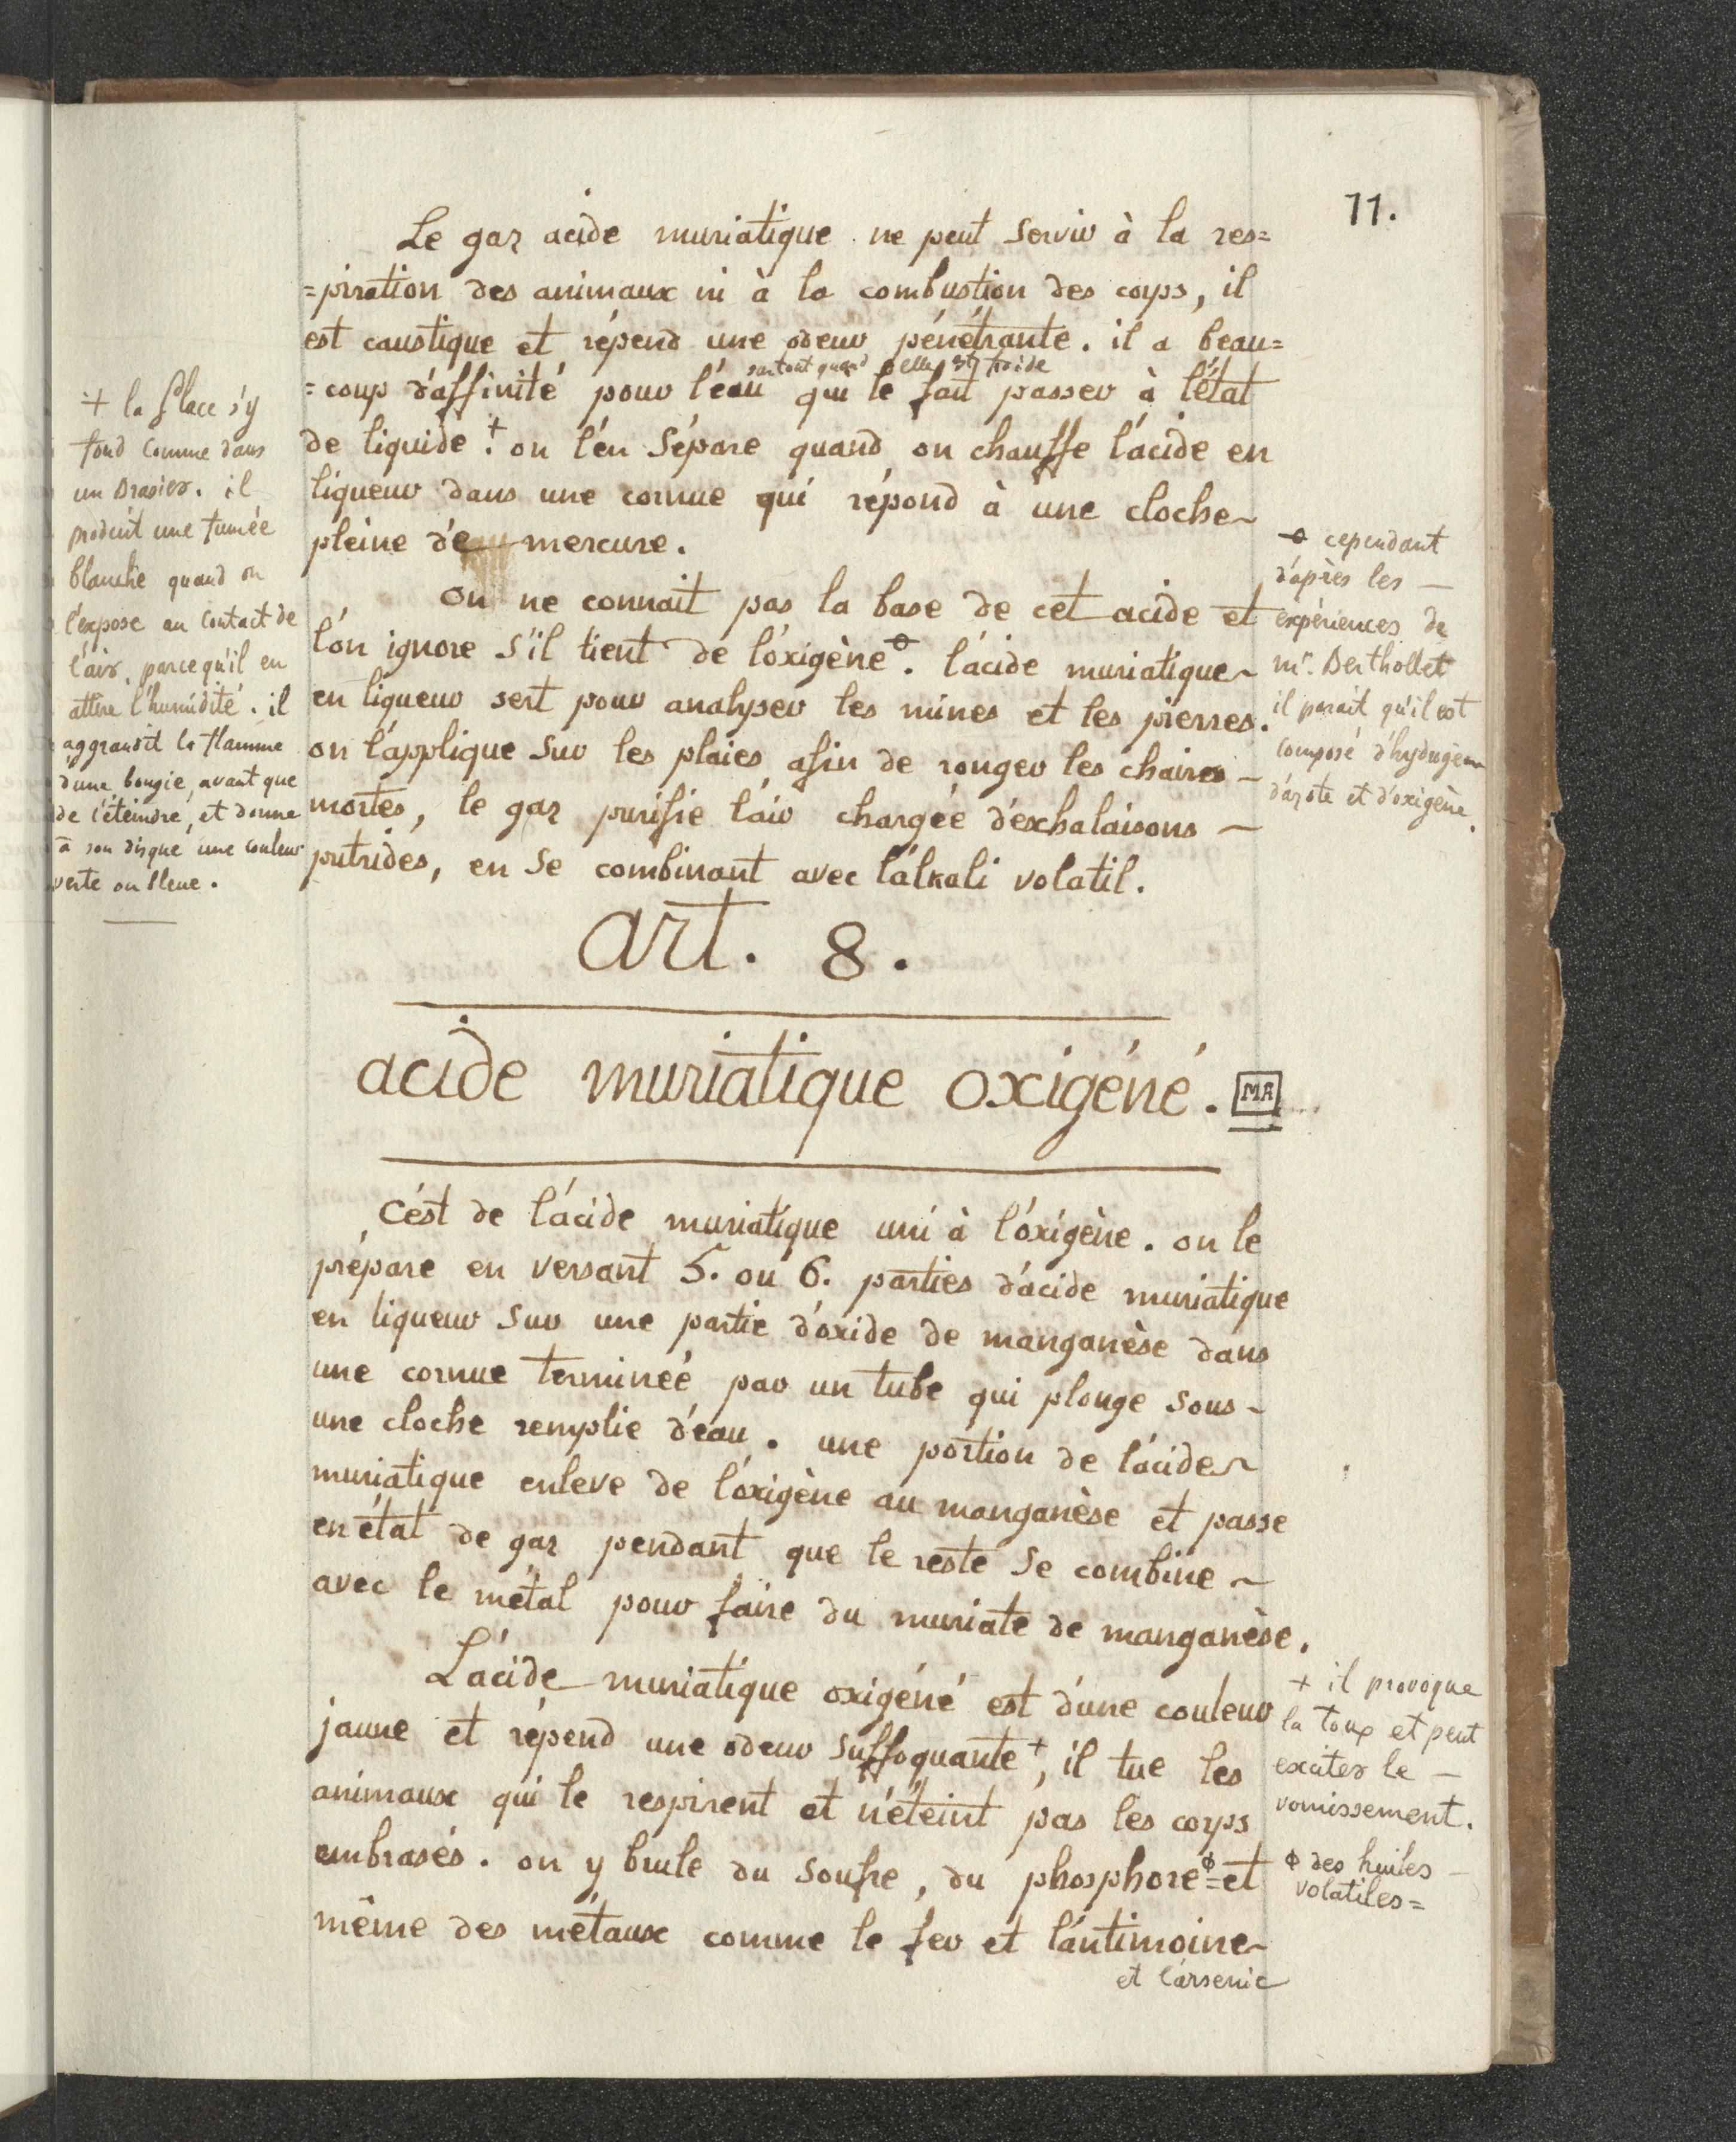 11.
Le gaz acide muriatique ne peut servir à la res=
=piration des animaux ni à la combustion des corps, il
est caustique et répend une odeur pénétrante. il a beau=
surtout quand elle est froide
=coup d'affinité pour l'eau qui le fait passer à l'état
de liquide + . on l'en sépare quand on chauffe l'acide en
liqueur dans une cornue qui répond à une cloche
pleine de mercure.
on ne connait pas la base de cet acide et
l'on ignore s'il tient de l'oxigène ⊖. l'acide muriatique
en liqueur sert pour analyser les mines et les pierres.
on l'applique sur les plaies afin de ronger les chaires
mortes, le gaz purifie l'air chargée d'exhalaisons
putrides, en se combinant avec l'alkali volatil.
+ la glace s'y
fond comme dans
un brasier. il
produit une fumée
blanche quand on
l'expose au contact de
l'air, parcequ'il en
attire l'humidité. il
aggrandit la flamme
d'une bougie, avant que
de l'éteindre, et donne
à son disque une couleur
verte ou bleue.
⊖ cependant
d'après les
expériences de
mr. Berthollet
il parait qu'il est
composé d'hydrogène
d'azote et d'oxigène.
art. 8.
acide muriatique oxigéné. MA
C'est de l'acide muriatique uni à l'oxigène. on le
prépare en versant 5. ou 6. parties d'acide muriatique
en liqueur sur une partie d'oxide de manganèse dans
une cornue terminée par un tube qui plonge sous
une cloche remplie d'eau. une portion de l'acide
muriatique enleve de l'oxigène au manganèse et passe
en état de gaz pendant que le reste se combine
avec le métal pour faire du muriate de manganèse.
L'acide muriatique oxigéné est d'une couleur
jaune et répend une odeur suffoquante +, il tue les
animaux qui le respirent et n'éteint pas les corps
embrasés. on y brule du soufre, du phosphore ϕ = et
même des métaux comme le fer et l'antimoine
et l'arsenic
+ il provoque
la toux et peut
exciter le
vomissement.
ϕ des huiles
volatiles =